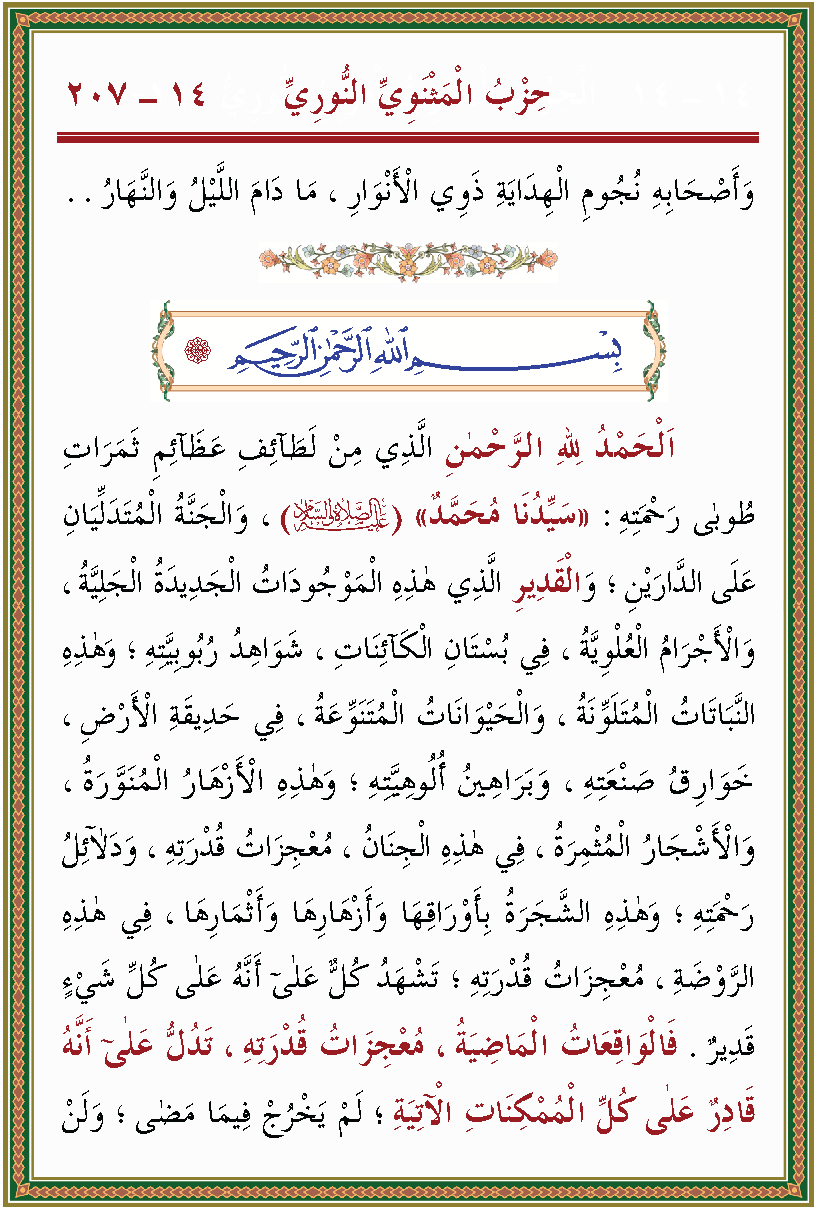 حِزْبُ الْمَثْنَوِيِّ النُّورِيِّ ١٤ – ٢٠٧
وَأَصْحَابِهِ نُجُومِ الْهِدَايَةِ ذَوِي الْأَنْوَارِ ، مَا دَامَ اللَّيْلُ وَالنَّهَارُ . .
بِسْمِ اللهِ الرَّحْمٰنِ الرَّحِيمِ
اَلْحَمْدُ لِلهِ الرَّحْمٰنِ الَّذِي مِنْ لَطَآئِفِ عَظَآئِمِ ثَمَرَاتِ
طُوبٰى رَحْمَتِهِ : «سَيِّدُنَا مُحَمَّدٌ» (عليه الصلاة والسلام) ، وَالْجَنَّةُ الْمُتَدَلِّيَانِ
عَلَى الدَّارَيْنِ ؛ وَالْقَدِيرِ الَّذِي هٰذِهِ الْمَوْجُودَاتُ الْجَدِيدَةُ الْجَلِيَّةُ ،
وَالْأَجْرَامُ الْعُلْوِيَّةُ ، فِي بُسْتَانِ الْكَآئِنَاتِ ، شَوَاهِدُ رُبُوبِيَّتِهِ ؛ وَهٰذِهِ
النَّبَاتَاتُ الْمُتَلَوِّنَةُ ، وَالْحَيْوَانَاتُ الْمُتَنَوِّعَةُ ، فِي حَدِيقَةِ الْأَرْضِ ،
خَوَارِقُ صَنْعَتِهِ ، وَبَرَاهِينُ أُلُوهِيَّتِهِ ؛ وَهٰذِهِ الْأَزْهَارُ الْمُنَوَّرَةُ ،
وَالْأَشْجَارُ الْمُثْمِرَةُ ، فِي هٰذِهِ الْجِنَانُ ، مُعْجِزَاتُ قُدْرَتِهِ ، وَدَلَآئِلُ
رَحْمَتِهِ ؛ وَهٰذِهِ الشَّجَرَةُ بِأَوْرَاقِهَا وَأَزْهَارِهَا وَأَثْمَارِهَا ، فِي هٰذِهِ
الرَّوْضَةِ ، مُعْجِزَاتُ قُدْرَتِهِ ؛ تَشْهَدُ كُلٌّ عَلٰىٓ أَنَّهُ عَلٰى كُلِّ شَيْءٍ
قَدِيرٌ . فَالْوَاقِعَاتُ الْمَاضِيَةُ ، مُعْجِزَاتُ قُدْرَتِهِ ، تَدُلُّ عَلٰىٓ أَنَّهُ
قَادِرٌ عَلٰى كُلِّ الْمُمْكِنَاتِ الْآتِيَةِ ؛ لَمْ يَخْرُجْ فِيمَا مَضٰى ؛ وَلَنْ